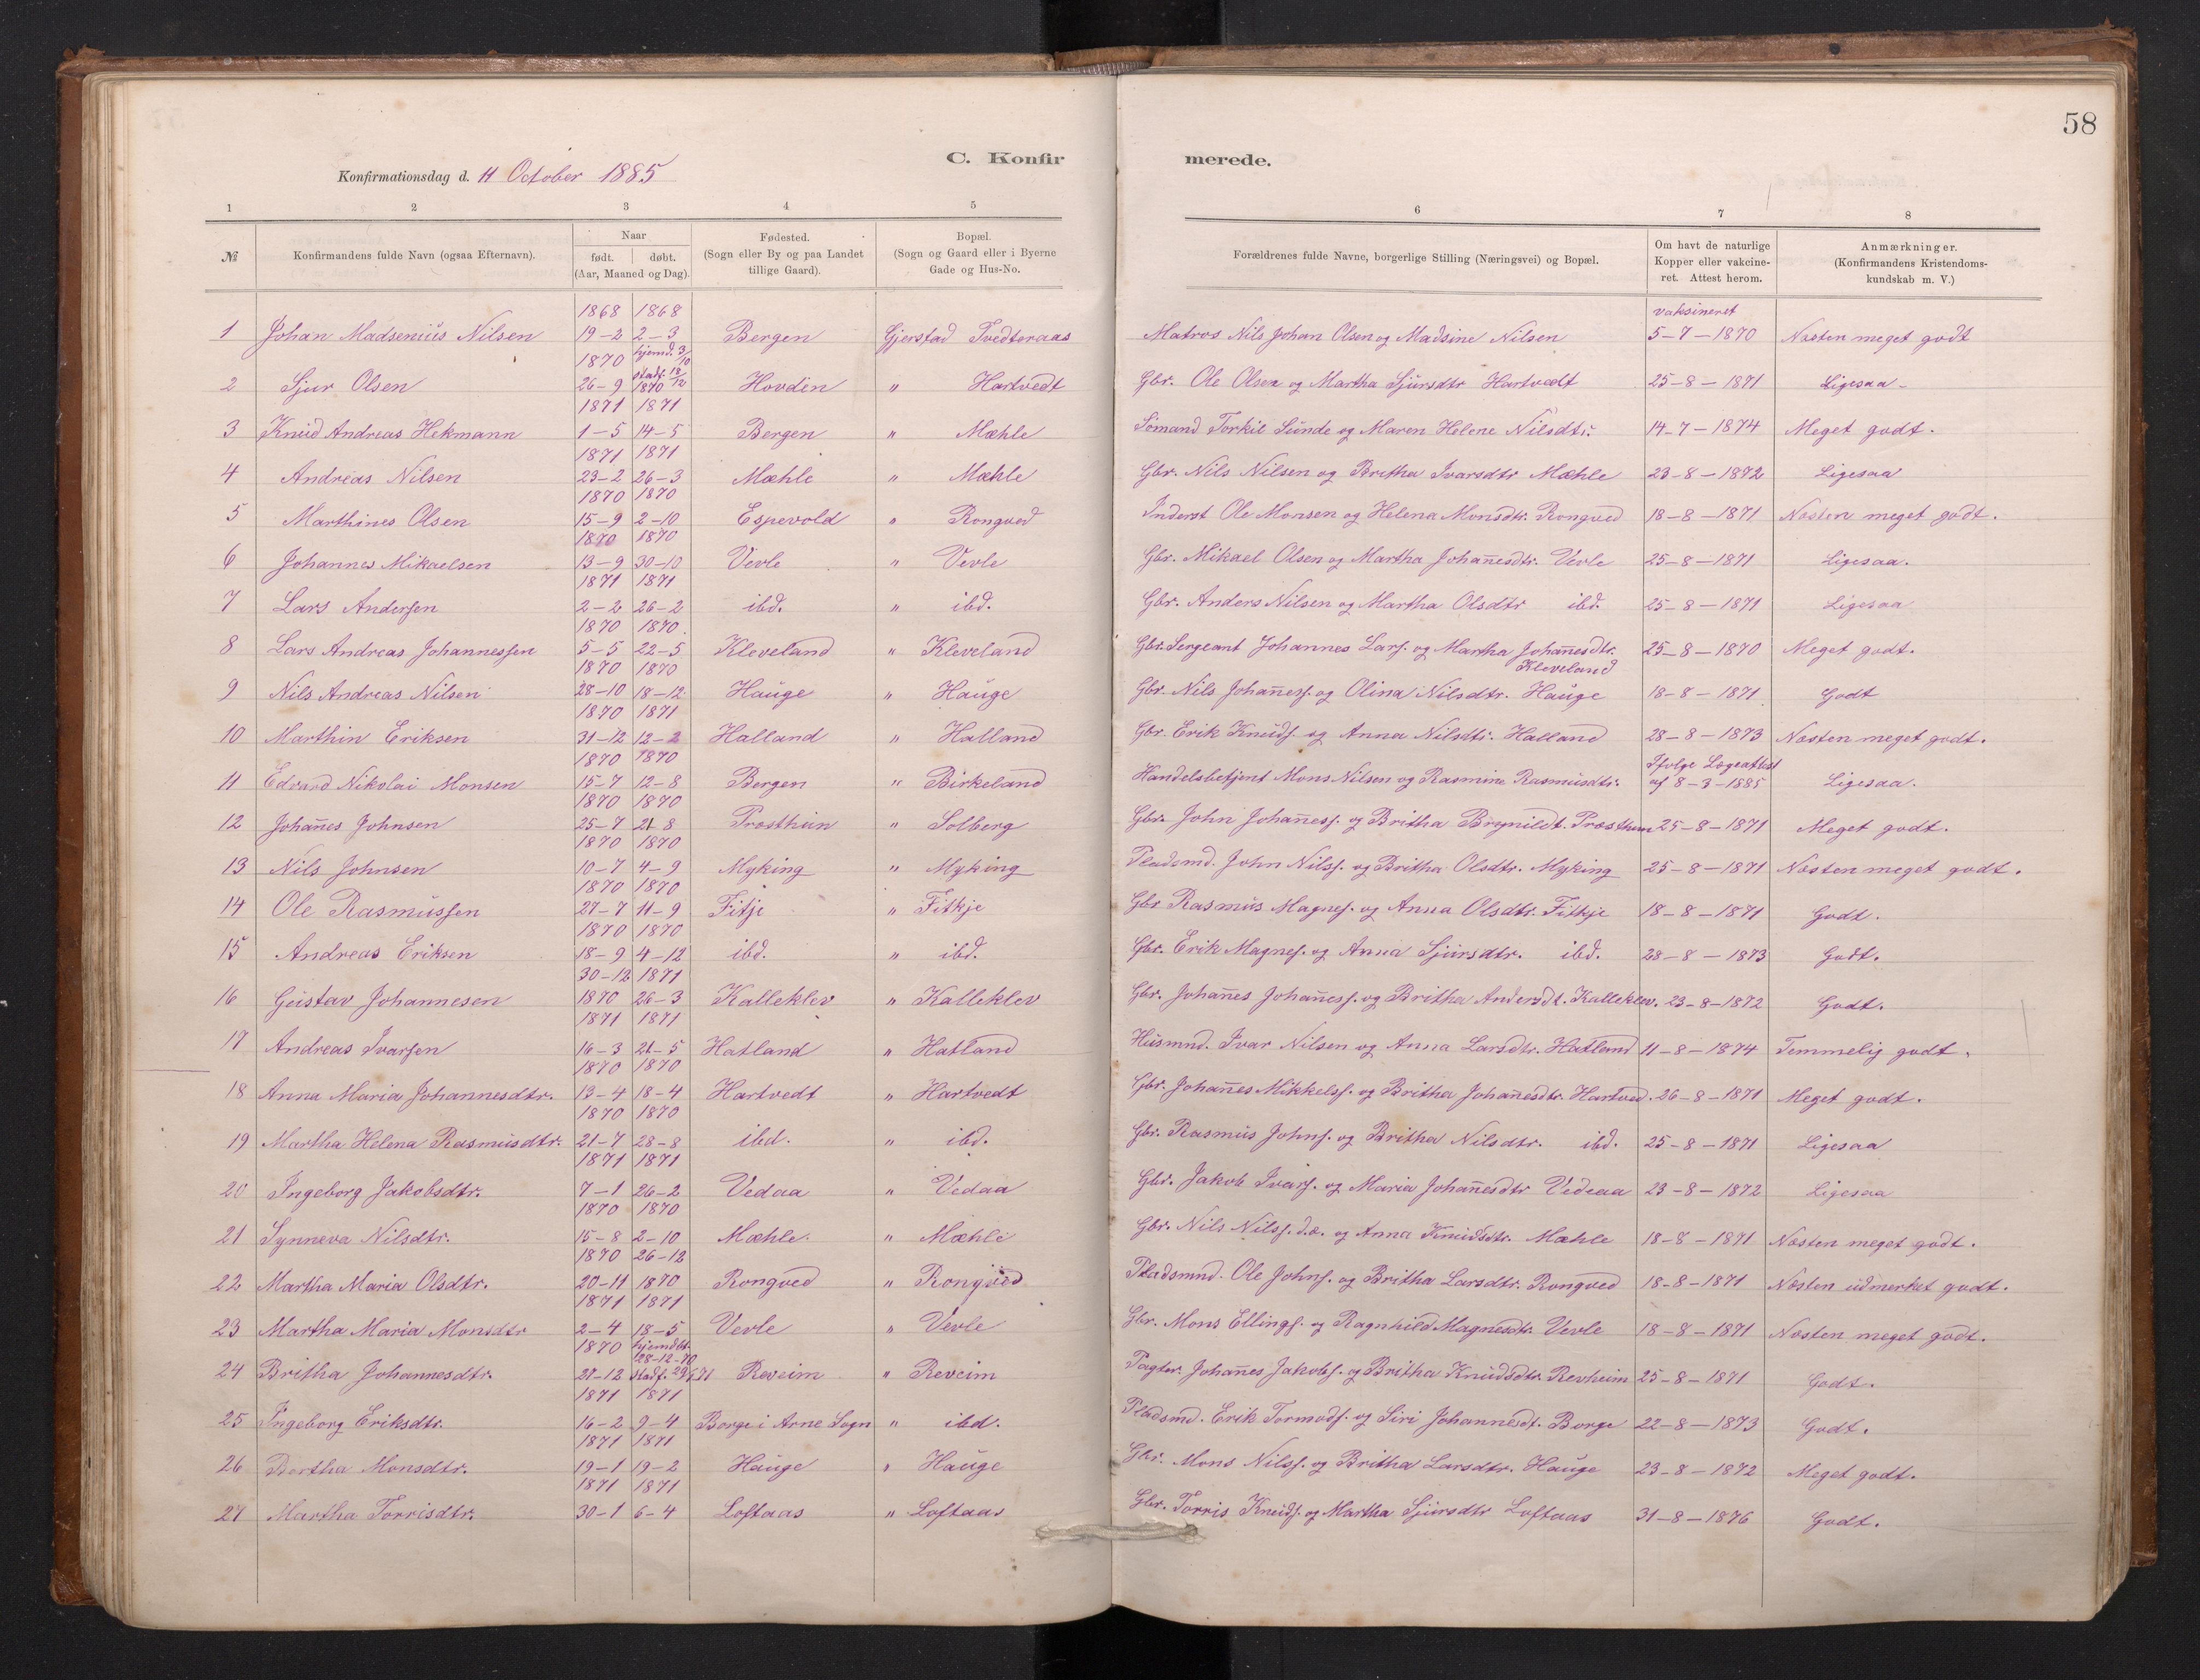 58
C. Konfir merede.
Konfirmationsdag d. 11 October 1885
1 2 3 4 5 6 7 8
№
Konfirmandens fulde Navn (ogsaa Efternavn).
Naar
født. døbt.
(Aar, Maaned og Dag).
Fødested.
(Sogn eller By og paa Landet
tillige Gaard).
Bopæl.
(Sogn og Gaard eller i Byerne
Gade og Hus-No.
Forældrenes fulde Navne, borgerlige Stilling (Næringsvei) og Bopæl.
Om havt de naturlige
Kopper eller vakcine-
ret. Attest herom.
Anmærkninger.
(Konfirmandens Kristendoms-
kundskab m. V.)
1868 1868 vaksineret
1 Johan Madsenius Nilsen 19-2 2-3 Bergen Gjerstad Tvedteraas Matros Nils Johan Olsen og Madsine Nilsen 5-7-1870 Næsten meget godt
1870 hjemd. 3/10 stadf. 18/12
2 Sjur Olsen 26-9 1870 Hovden " Hartvedt Gbr. Ole Olsen og Martha Sjursdtr Hartvedt 25-8-1871 Ligesaa
1871 1871
3 Knud Andreas Hekmann 1-5 14-5 Bergen " Mæhle Sömand Torkil Sunde og Maren Helene Nilsdtr. 14-7-1874 Meget godt.
1871 1871
4 Andreas Nilsen 23-2 26-3 Mæhle " Mæhle Gbr. Nils Nilsen og Britha Ivarsdtr Mæhle 23-8-1872 Ligesaa
1870 1870
5 Marthines Olsen 15-9 2-10 Espevold " Rongved Inderst Ole Monsen og Helena Monsdtr. Rongved 18-8-1871 Næsten meget godt.
1870 1870
6 Johannes Mikaelsen 13-9 30-10 Vevle " Vevle Gbr. Mikael Olsen og Martha Johan̄esdtr. Vevle 25-8-1871 Ligesaa.
1871 1871
7 Lars Andersen 2-2 26-2 ibd. " ibd. Gbr. Anders Nilsen og Martha Olsdtr ibd. 25-8-1871 Ligesaa
1870 1870.
8 Lars Andreas Johannessen 5-5 22-5 Kleveland " Kleveland Gbr. Sergeant Johannes Lars. og Martha Johan̄esdtr. Kleveland 25-8-1870 Meget godt.
1870 1870
9 Nils Andreas Nilsen 28-10 18-12 Hauge " Hauge Gbr. Nils Johan̄ess. og Olina Nilsdtr. Hauge 18-8-1871 Godt
1870 1871
10 Marthin Eriksen 31-12 12-2 Halland " Halland Gbr. Erik Knuds. og Anna Nilsdtr. Halland 28-8-1873 Næsten meget godt.
1870 1870 Ifølge Lægeattest
11 Edvard Nikolai Monsen 15-7 12-8 Bergen " Birkeland Handelsbetjent Mons Nilsen og Rasmine Rasmusdtr. af 8-3-1885 Ligesaa.
1870 1870
12 Johan̄es Johnsen 25-7 21 8 Præsthun " Solberg Gbr. John Johan̄ess. og Britha Brynildt. Præsthun 25-8-1871 Meget godt.
1870 1870
13 Nils Johnsen 10-7 4-9 Myking " Myking Pladsmd. John Nilss. og Britha Olsdtr. Myking 25-8-1871 Næsten meget godt.
1870 1870
14 Ole Rasmussen 27-7 11-9 Fitje " Fitkje Gbr Rasmus Magnes. og Anna Olsdtr. Fitkje 18-8-1871 Godt.
1870 1870
15 Andreas Eriksen 18-9 4-12 ibd. " ibd. Gbr. Erik Magnes. og Anna Sjursdtr. ibd. 28-8-1873 Godt.
30-12 1871
16 Gustav Johannesen 1870 26-3 Kalleklev " Kalleklev Gbr. Johan̄es Johan̄ess. og Britha Andersdt. Kalleklev. 23-8-1872 Godt.
1871 1871
17 Andreas Ivarsen 16-3 21-5 Hatland " Hatland Husmnd. Ivar Nilsen og Anna Larsdtr. Hatland 11-8-1874 Temmelig godt.
1870 1870
18 Anna Maria Johannesdtr. 13-4 18-4 Hartvedt " Hartvedt Gbr. Johan̄es Mikkelss. og Britha Johan̄esdtr. Hartved. 26-8-1871 Meget godt.
1870 1870
19 Martha Helena Rasmusdtr. 21-7 28-8 ibd. " ibd. Gbr. Rasmus Johns. og Britha Nilsdtr. ibd. 25-8-1871 Ligesaa
1871 1871
20 Ingeborg Jakobsdtr. 7-1 26-2 Vedaa " Vedaa Gbr. Jakob Ivars. og Maria Johan̄esdtr Vedeaa 23-8-1872 Ligesaa
1870 1870
21 Synneva Nilsdtr. 15-8 2-10 Mæhle. " Mæhle Gbr. Nils Nilss. d.æ. og Anna Knudsdtr. Mæhle 18-8-1871 Næsten meget godt.
1870 26-12
22 Martha Maria Olsdtr. 20-11 1870 Rongved " Rongved Pladsmnd. Ole Johns. og Britha Larsdtr. Rongved 18-8-1871 Næsten udmerket godt.
1871 1871
23 Martha Maria Monsdtr 2-4 18-5 Vevle " Vevle Gbr. Mons Ellings. og Ragnhild Magnesdtr. Vevle 18-8-1871 Næsten meget godt.
1870 hjemdbt. 28-12-70
24 Britha Johannesdtr. 27-12 stadf. Reveim " Reveim Pagter. Johan̄es Jakobs. og Britha Knudsdtr. Revheim 25-8-1871 Godt.
1871 1871
25 Ingeborg Eriksdtr. 16-2 9-4 Borge i Arne Sogn " ibd. Pladsmd. Erik Tormods. og Siri Johannesdt. Borge 22-8-1873 Godt.
1871 1871
26 Bertha Monsdtr. 19-1 19-2 Hauge " Hauge Gbr. Mons Nilss. og Britha Larsdtr. Hauge 23-8-1872 Meget godt.
1871 1871
27 Martha Torrisdtr. 30-1 6-4 Loftaas " Loftaas Gbr. Torris Knuds. og Martha Sjursdtr Loftaas 31-8-1876 Godt.